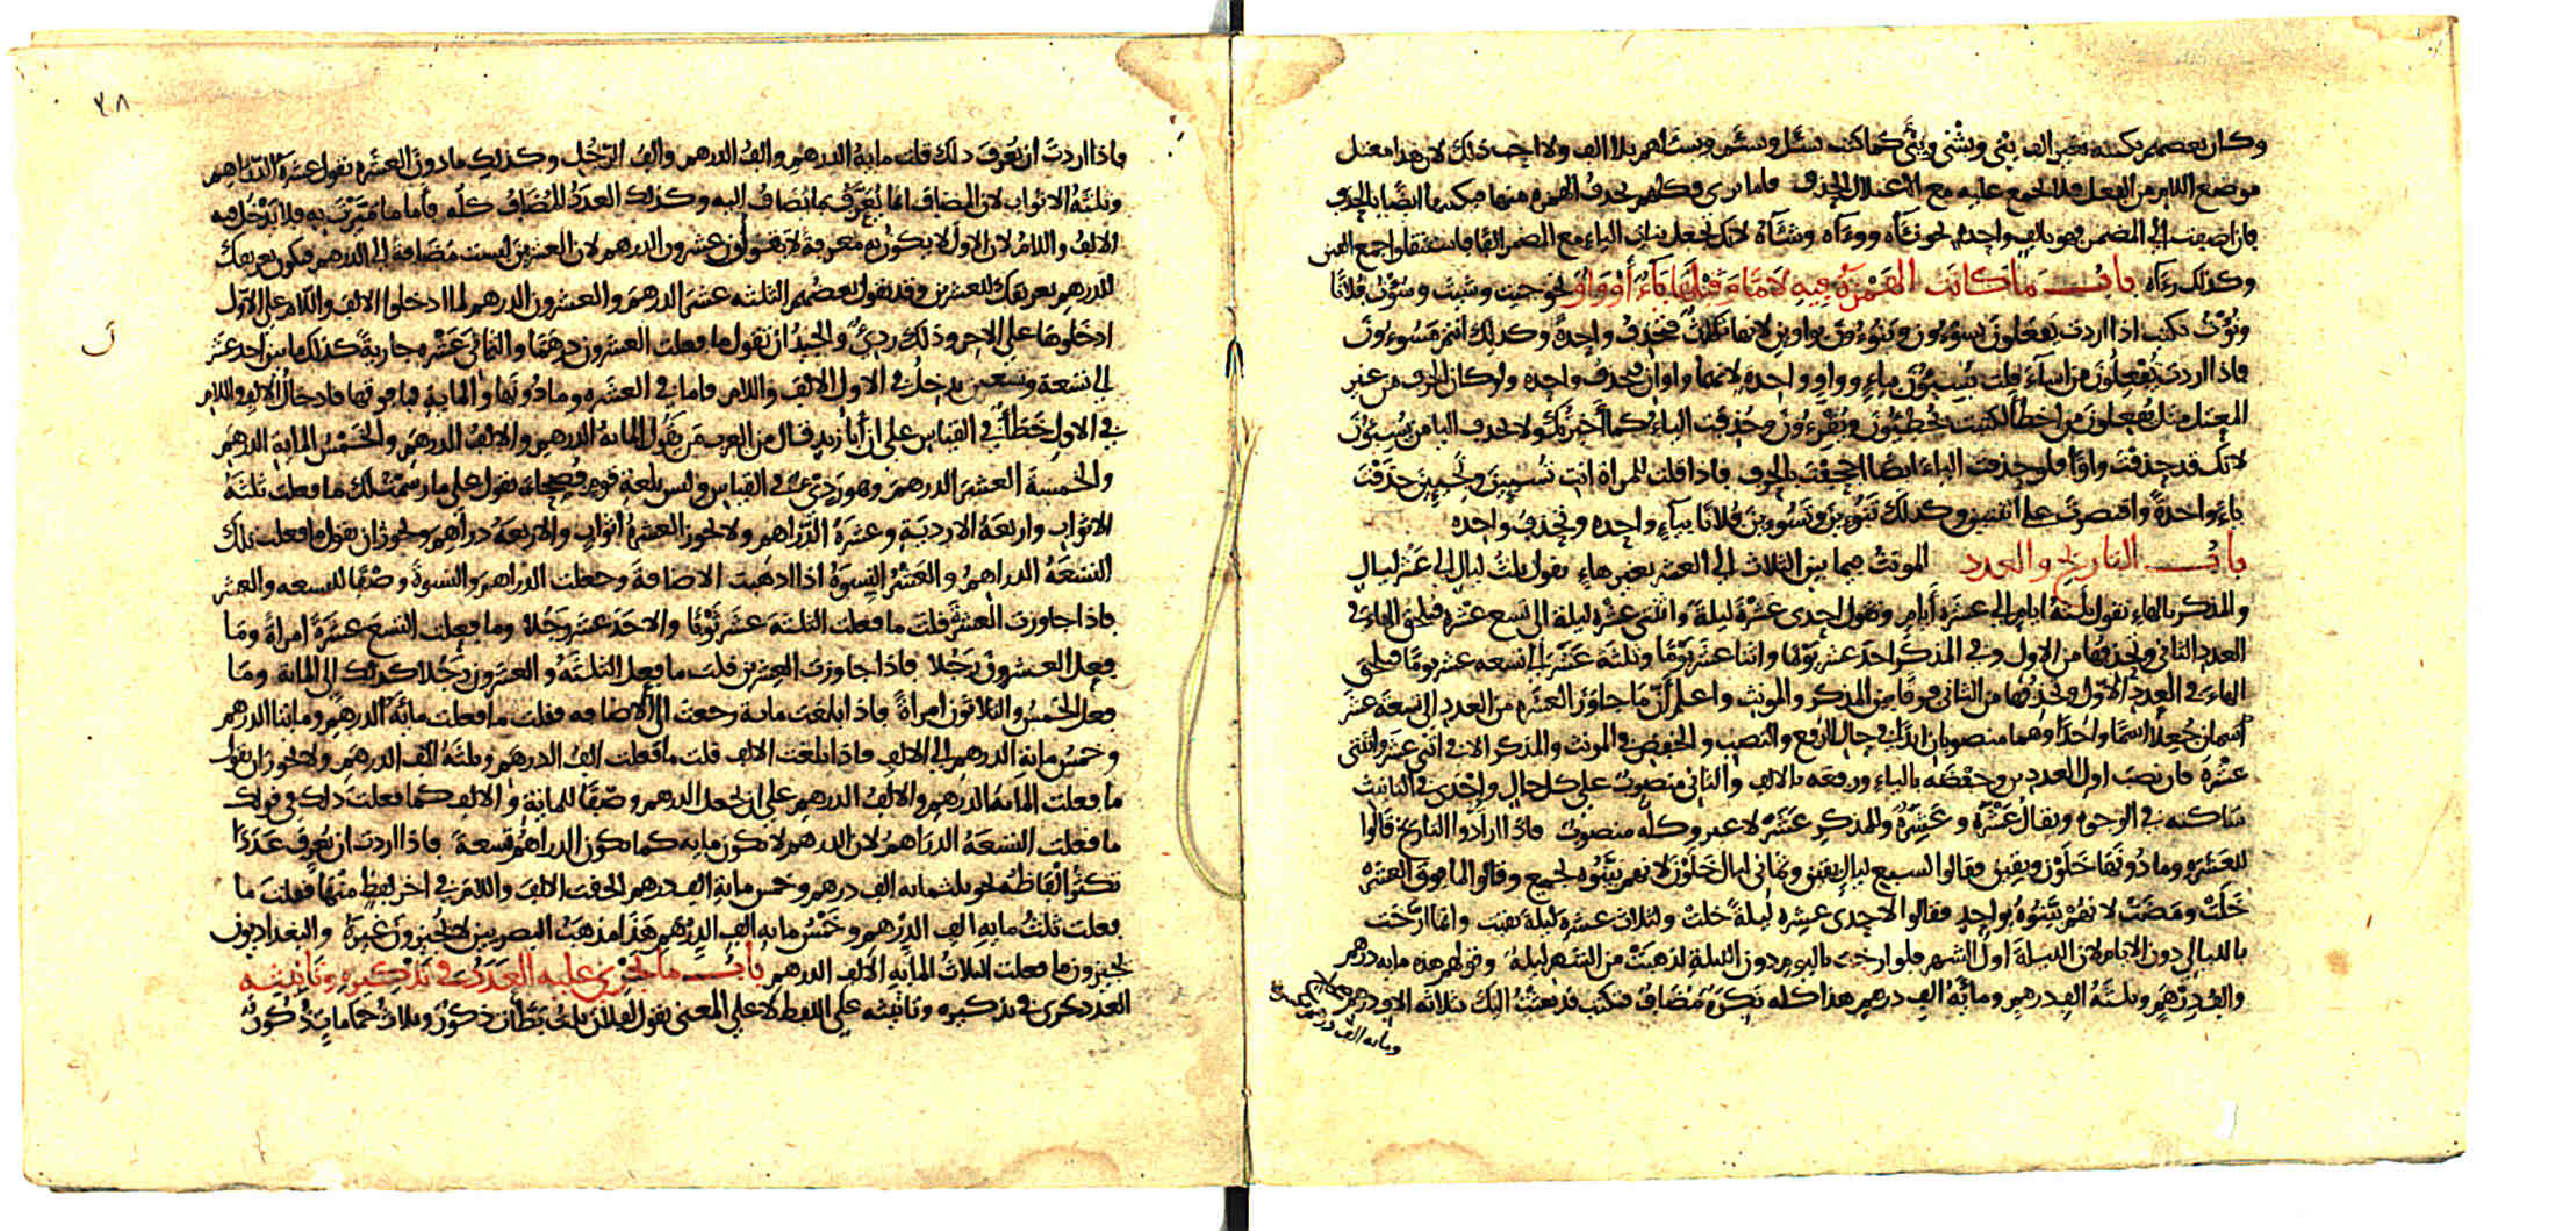 وكان بعضهم يكتبه بغير الف ينى ويشنى وينى كما كتب يسئل ويسئم ويستلهم بلا الف ولا احب ذلك لان هذا معتل
موضع اللام من الفعل فلا يجمع عليه مع الاعتلال الحذف فاما يرى فكلهم يحذف الهمزة منها فيكتبها ايضا بالحذف
فان اضيفت الى المضمر فهو بالف واحدة نحو نآه ووءآه وشآه لانك تجعل بنات الياء مع المضمر الفا فاستثقلوا جمع الفين
وكذلك رءآه باب ما كانت الهمزة فيه لاما وقبلها ياء أو واو نحو جيت وشيت وسؤت فلانا
ونؤت تكتب اذا اردت يفعلون يسوءون وينوءون بواوين لانها ثلث فتحذف واحدة وكذلك انتم مسوءون
فاذا اردت يفعلون من اساء قلت يسيئون بياء وواو واحدة لانهما واوان فتحذف واحدة ولو كان الحرف من غير
المعتل مثل يفعلون من اخطأ لكتبت يخطئون ويقرءون وحذفت الياء كما اخبرتك ولا تحذف اليا من يسيئون
لانك قد حذفت واوا فلو حذفت الياء ايضا اجحفت بالحرف فاذا قلت للمراة انت تسيئين وتجيئين حذفت
ياء واحدة واقتصرت على اثنتين وكذلك تنوءين وتسوءين فلانا بياء واحدة وتحذف واحدة
باب التاريخ والعدد المونث فيما بين الثلاث الى العشر بغير هاء تقول ثلث ليال الى عشر ليال
والمذكر بالهاء تقول ثلثة ايام الى عشرة أيام وتقول احدى عشرة ليلة واثنتى عشرة ليلة الى تسع عشرة فتلحق الهاء فى
العدد الثانى وتحذفها من الاول وفى المذكر احد عشر يوما واثنا عشر يوما وثلثة عشر الى تسعة عشر يوما فتلحق
الهاء فى العدد الاول وتحذفها من الثانى فرقا بين المذكر والمونث واعلم أن ما جاوز العشرة من العدد الى تسعة عشر
اسمان جعلا اسما واحدا وهما منصوبان ابدا فى حال الرفع والنصب والخفض فى المونث والمذكر الا فى اثنى عشر واثنتى
عشرة فان نصب اول العددين وخفضه بالياء ورفعه بالالف والثانى منصوب على كل حال واحدى فى التانيث
ساكنة فى الوجوه ويقال عشرة وعشرة وللمذكر عشر لا غير وكله منصوب فاذا ارادوا التاريخ قالوا
للعشرة وما دونها خلون وبقين فقالوا لسبع ليال بقين وثمانى ليال خلون لانهم بينوه بجميع وقالوا لما فوق العشرة
خلت ومضت لانهم بينوه بواحد فقالوا لاحدى عشرة ليلة خلت ولثلاث عشرة ليلة بقيت وانما ارخت
بالليالى دون الايام لان الليلة اول الشهر فلو ارخت باليوم دون الليلة لذهبت من الشهر ليلة وقولهم هذه مايه درهم
والف درهم وثلثة الف درهم ومائة الف درهم هذا كله نكرة مضاف فتكتب قد بعثت اليك بثلاثة الاف درهم
ومايه الف درهم
٣٨
فاذا اردت ان تعرف ذلك قلت ماية الدرهم والف الدرهم والف الرجل وكذلك ما دون العشرة تقول عشرة الدراهم
وثلثة الاثواب لان المضاف انما يعرف بما يضاف اليه وكذلك العدد المضاف كله فأما ما ميزت به فلا يدخل فيه
الالف واللام لان الاول لا يكون به معرفة لا تقولون عشرون الدرهم لان العشرين ليست مضافة الى الدرهم فيكون تعريفك
للدرهم تعريفك للعشرين وقد يقول بعضهم الثلثة عشر الدرهم والعشرون الدرهم لما ادخلوا الالف واللام على الاول
ادخلوها على الاخر وذلك ردئ والجيد ان تقول ما فعلت العشرون درهما والثمانى عشرة جارية كذلك ما بين احد عشر
الى تسعة وتسعين يدخل فى الاول الالف واللام فاما فى العشرة وما دونها والماية فما فوقها فادخال الالف واللام
فى الاول خطأ فى القياس على ان أبا زيد قال من العرب من يقول الماية الدرهم والالف الدرهم والخمس الماية الدرهم
والخمسة العشر الدرهم وهو ردئ فى القياس وليس بلغة قوم فصحاء تقول على ما رسمت لك ما فعلت ثلثة
الاثواب واربعة الاردية وعشرة الدراهم ولا يجوز العشرة اثواب والاربعة دراهم ويجوز ان تقول ما فعلت تلك
التسعة الدراهم والعشر النسوة اذا اذهبت الاضافة وجعلت الدراهم والنسوة وصفا للتسعة والعشر
فاذا جاوزت العشرة قلت ما فعلت الثلثة عشر ثوبا والاحد عشر رجلا وما فعلت التسع عشرة امراة وما
فعل العشرون رجلا فاذا جاوزت العشرين قلت ما فعل الثلثة والعشرون رجلا كذلك الى الماية وما
فعل الخمس والثلاثون امراة فاذا بلغت ماية رجعت الى الاضافه فقلت ما فعلت مائة الدرهم ومايتا الدرهم
وخمس ماية الدرهم الى الالف فاذا بلغت الالف قلت ما فعلت الف الدرهم وثلثة الف الدرهم ولا يجوز ان تقول
ما فعلت الماية الدرهم والالف الدرهم على ان تجعل الدرهم وصفا للماية والالف كما فعلت ذلك فى قولك
ما فعلت التسعة الدراهم لان الدرهم لا يكون مايه كما تكون الدراهم تسعة فاذا اردت ان تعرف عددا
تكثر الفاظه نحو ثلثمايه الف درهم وخمس ماية الف درهم الحقت الالف واللام فى اخر لفظ منها فقلت ما
فعلت ثلث مايه الف الدرهم وخمس مايه الف الدرهم هذا مذهب البصريين لا يجيزون غيره والبغداديون
يجيزون ما فعلت الثلاث الماية الالف الدرهم باب ما يجرى عليه العدد فى تذكيره وتأنيثه
العدد يجرى فى تذكيره وتانيثه على اللفظ لا على المعنى تقول لفلان ثلث بطات ذكور وثلاث حمامات ذكور